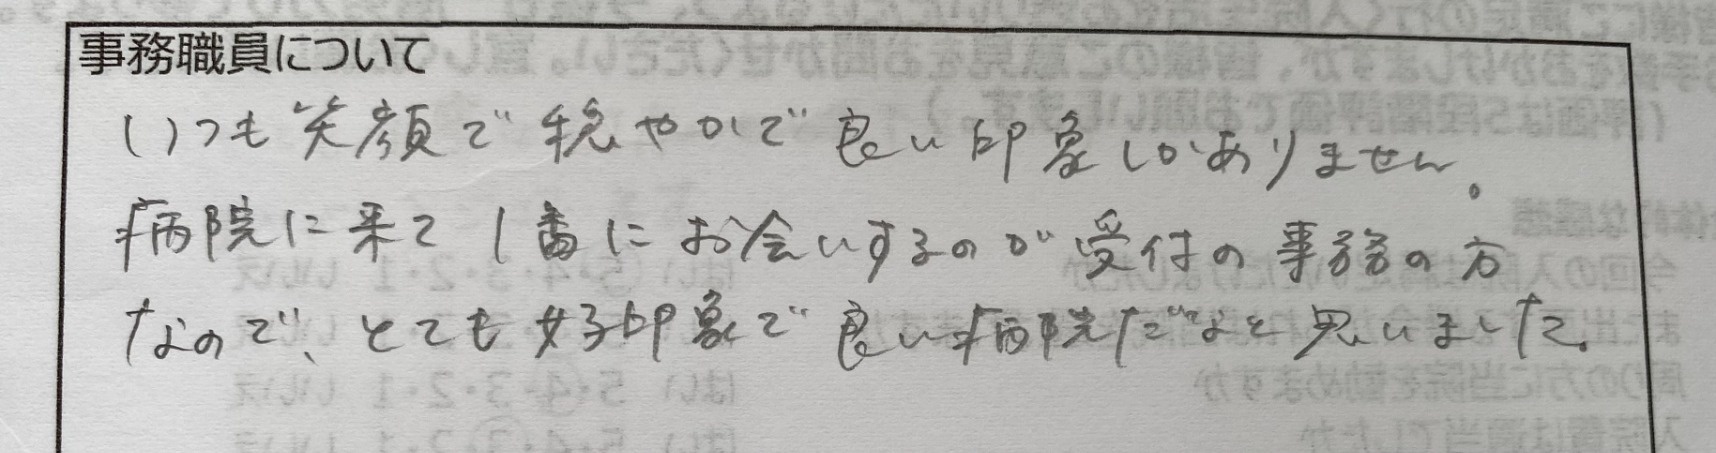 事務職員について
いつも笑顔で穏やかで良い印象しかありません。
病院に来て1番にお会いするのが受付の事務の方
なので、とても好印象で良い病院だなと思いました。